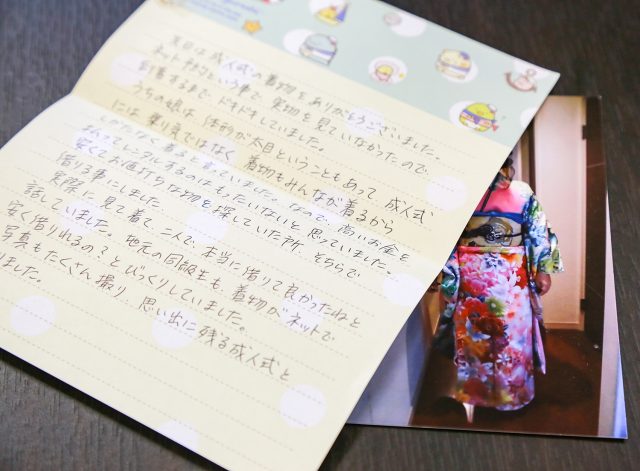 先日は成人式の着物をありがとうございました。
ネット予約という事で、実物を見ていなかったので、
到着するまで、ドキドキしていました。
うちの娘は、体型が太目ということもあって、成人式
には、乗り気ではなく、着物もみんなが着るから
しかたなく着ると言っていました。なので、高いお金を
払ってレンタルするのはもったいないと思っていました。
安くてお値打ちな物を探していた所、そちらで
借りる事にしました
実際に見て着て、二人で、本当に借りて良かったねと
話していました。地元の同級生も、着物がネットで
安く借りれるの?とびっくりしていました。
写真もたくさん撮り、思い出に残る成人式と
りました。